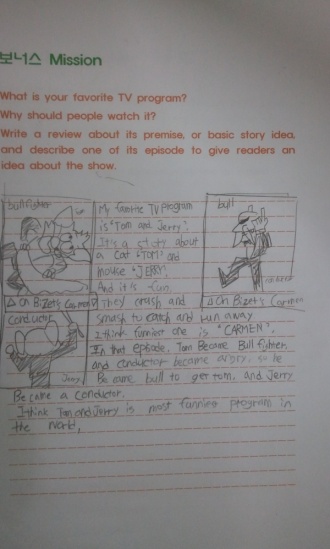 보너스 Mission
What is your favorite TV program?
Why should people watch it?
Write a review about its premise, or basic story idea,
and describe one of its episode to give readers an
idea about the show.
bullfighter
My favorite TV program
is "Tom and Jerry".
It's a story about
a Cat "TOM" and
mouse "JERRY".
And it's fun.
bull
△ On Bizet's Carmen
They crash and
smash to catch and run away.
I think funniest one is "CARMEN".
In that episode, Tom Became Bull fighter,
and conductor became angry, so he
Became bull to get tom, and Jerry
Became a conductor.
△ On Bizet's Carmen
conductor
Jerry
I think Tom and Jerry is most funnies program in
the world,